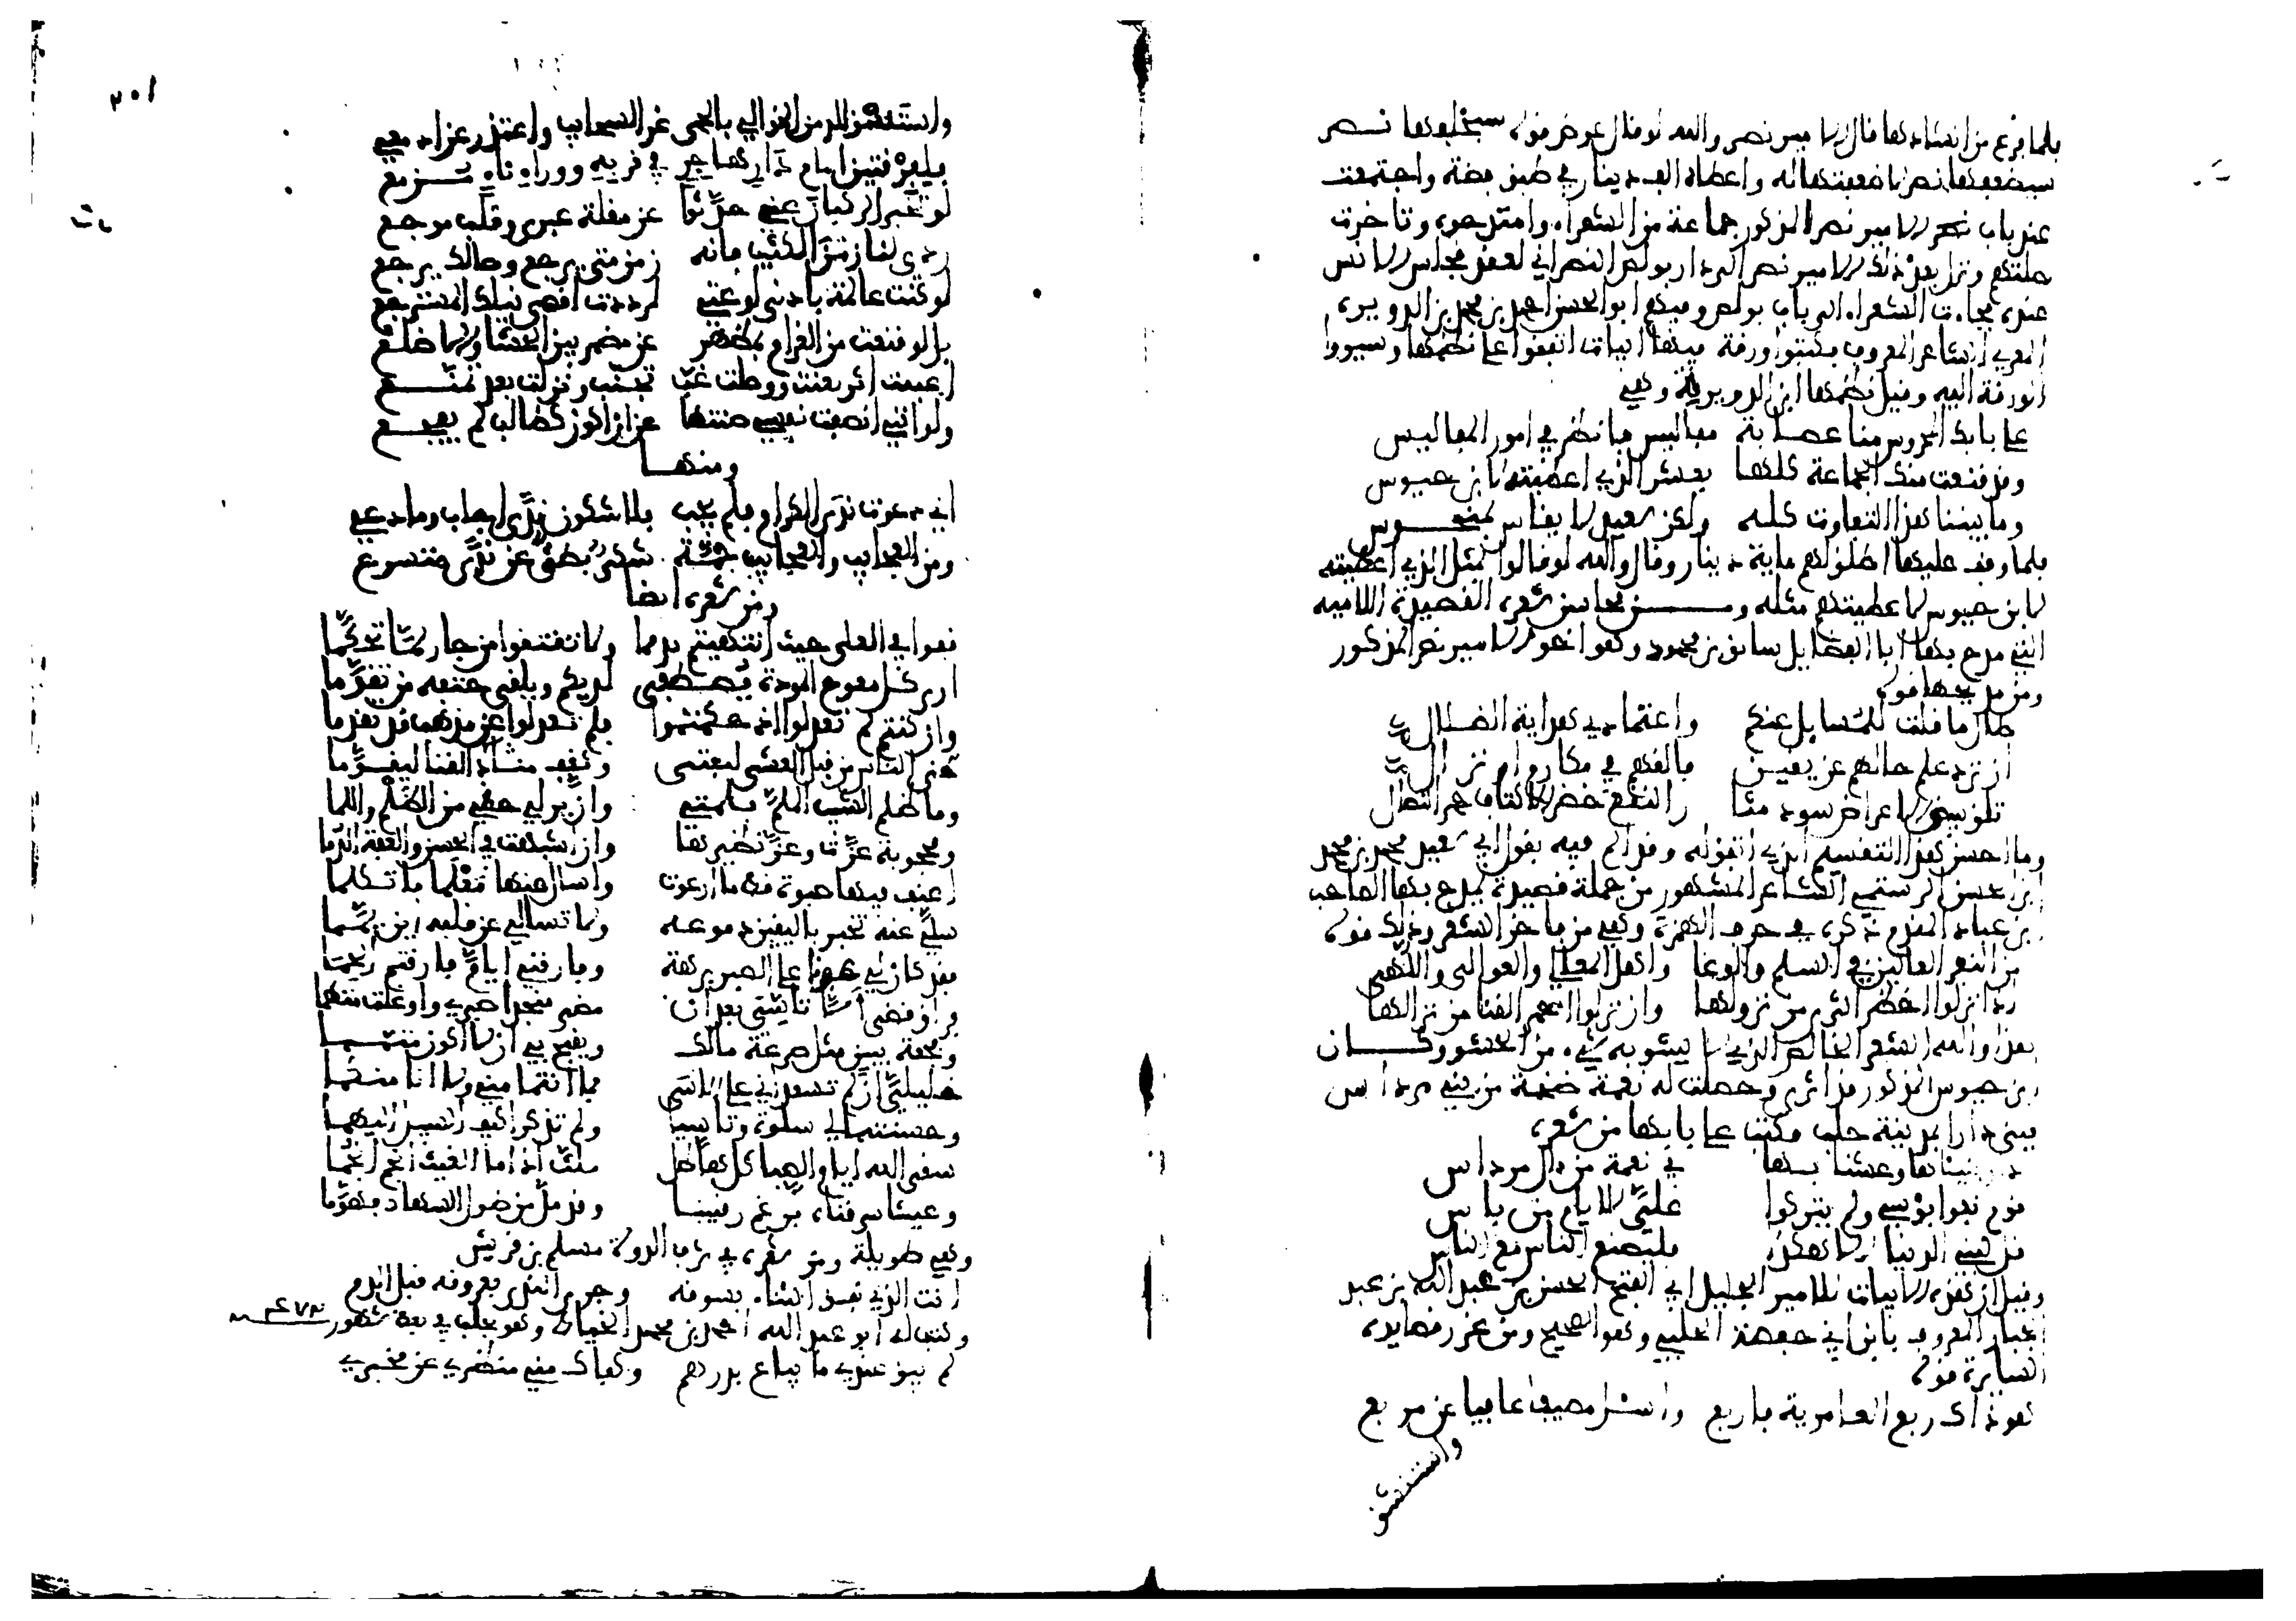 فلما فرغ من انشادها قال الامير نصر والله لو قال عوض قوله سيخلفها نصر
سيضعفها نصر لاضعفتها له واعطاه الف دينار في طبق فضة واجتمعت
عند باب الامير نصر المذكور جماعة من الشعراء وامتدحوه وتاخرت
صلتهم ونزل بعد ذلك الامير نصر الى دار بولص النصراني لعقد مجلس الانس
عنده فجاءت الشعراء الى باب بولص وفيهم ابو الحسن احمد بن محمد بن الدويرة
المعري الشاعر المعروف فكتبوا ورقة فيها ابيات اتفقوا على نظمها وسيروا
الورقة اليه وقيل نظمها ابن الدويرة وهي
على بابك المحروس منا عصابة مفاليس فانظر في امور المفاليس
وقد قنعت منك الجماعة كلها بعشر الذي اعطيته لابن حيوس
وما بيننا هذا التفاوت كله ولكن سعيد لا يقاس بمنحوس
فلما وقف عليها اطلق لهم ماية دينار وقال والله لو قالوا بمثل الذي اعطيته
لابن حيوس لاعطيتهم مثله ومن محاسن شعره القصيدة اللامية
التي مدح بها ابا الفضايل سابق بن محمود وهو اخو الامير نصر المذكور
ومن مديحها قوله
طال ما قلت للمسايل عنكم واعتمادي هداية الضلال
ان ترد علم حالهم عن يقين فالقهم في مكارم او نزال
تلق بيض الاعراض سود مثار النقع خضر الاكناف حمر النصال
وما احسن هذا التقسيم الذي اتفق له وقد الم فيه بقول ابي سعيد محمد بن محمد
ابن الحسن الرستمي الشاعر المشهور من جملة قصيدة يمدح بها الصاحب
بن عباد المقدم ذكره في حرف الهمزة وهي من فاخر الشعر وذلك قوله
من النفر العالين في السلم والوغا واهل المعالي والعوالي واللهى
اذا نزلوا اخضر الثرى من نزولها وان نازلوا احمر القنا من نزالها
هذا والله الشعر الخالص الذي لا يشوبه شيء من الحشو وكان
ابن حيوس المذكور قد اثرى وحصلت له نعمة ضخمة من بني مرداس
فبنى دارا بمدينة حلب وكتب على بابها من شعره
دار بنيناها وعشنا بها في نعمة من ال مرداس
قوم نفوا بؤسي ولم يتركوا علي للايام من باس
قل لبني الدنيا الا هكذا فليصنع الناس مع الناس
وقيل ان هذه الابيات للامير الجليل ابي الفتح الحسن بن عبد الله بن عبد
الجبار المعروف بابن ابي حصينة الحلبي وهو الصحيح ومن غرر قصايده
السايرة قوله
هو ذاك ربع العامرية فاربع واسال مصيفا عافيا عن مربع
واستسق
واستسق للدمن الخوالي بالحمى غر السحاب واعتذر عن ادمعي
فلقد فنين امام دان هاجر في قربه ووراء ناء مزمع
لو تخبر الركبان عني حدثوا عن مقلة عبرى وقلب موجع
ردي لنا زمن الكثيب فانه زمن متى يرجع وصالك يرجع
لو كنت عالمة بادنى لوعتي لرددت اقصى نيلك المسترجع
بل لو قنعت من الغرام بمظهر عن مضمر بين الحشا والاضلع
اعتبت اثر تعتب ووصلت غب تجنب وبذلت بعد تمنع
ولو انني انصفت نفسي صنتها عن ان اكون كطالب لم ينجع
ومنها
اني دعوت ندى الكرام فلم يجب فلاشكرن ندى اجاب وما دعي
ومن العجايب والعجايب جمة شكر بطيء عن ندى متسرع
ومن شعره ايضا
قفوا في القلى حيث انتهيتم تذمما ولا تقتفوا من جار لما تحكما
ارى كل معوج المودة يصطفى لديكم ويلقى حتفه من تقوما
وان كنتم لم تعدلوا اذ حكمتم فلا تعدلوا عن مذهب قد تقدما
حنى الناس من قبل القسي ليقتنى وثقف مناد القنا ليقوما
وما ظلم الشيب الملم بلمتي وان بزني حظي من الظلم واللما
ومحجوبة عزت وعز نظيرها وان اشبهت في الحسن والعفة الدما
اعنف فيها صبوة قط ما ارعوت واسال عنها معلما ما تكلما
سلي عنه تخبر باليقين دموعه ولا تسالي عن قلبه اين يمما
فقد كان لي عونا على الصبر برهة وفارقني ايام فارقتم الحما
فراق قضى ان لا تاسي بعد ان مضى منجدا صبري واوغلت متهما
وفجعة بين مثل صرعة مالك ويقبح بي ان لا اكون متمما
خليلي ان لم تسعداني على الاسى فما انتما مني ولا انا منكما
وحسنتما لي سلوة وتناسيا ولم تذكرا كيف السبيل اليهما
سقى الله ايام الصبا كل هاطل ملث اذا ما الغيث انجم انجما
وعيشا سرقناه برغم رقيبنا وقد مل من طول السهاد فهوما
وهي طويلة ومن شعره في شرف الدولة مسلم بن قريش
انت الذي نفق الثناء بسوقه وجرى الندى بعروقه قبل الدم
وكتب له ابو عبد الله احمد بن محمد الخياط وهو بحلب في بعض شهور ٤٧٢
لم يبق عندي ما يباع بدرهم وكفاك مني منظري عن مخبري